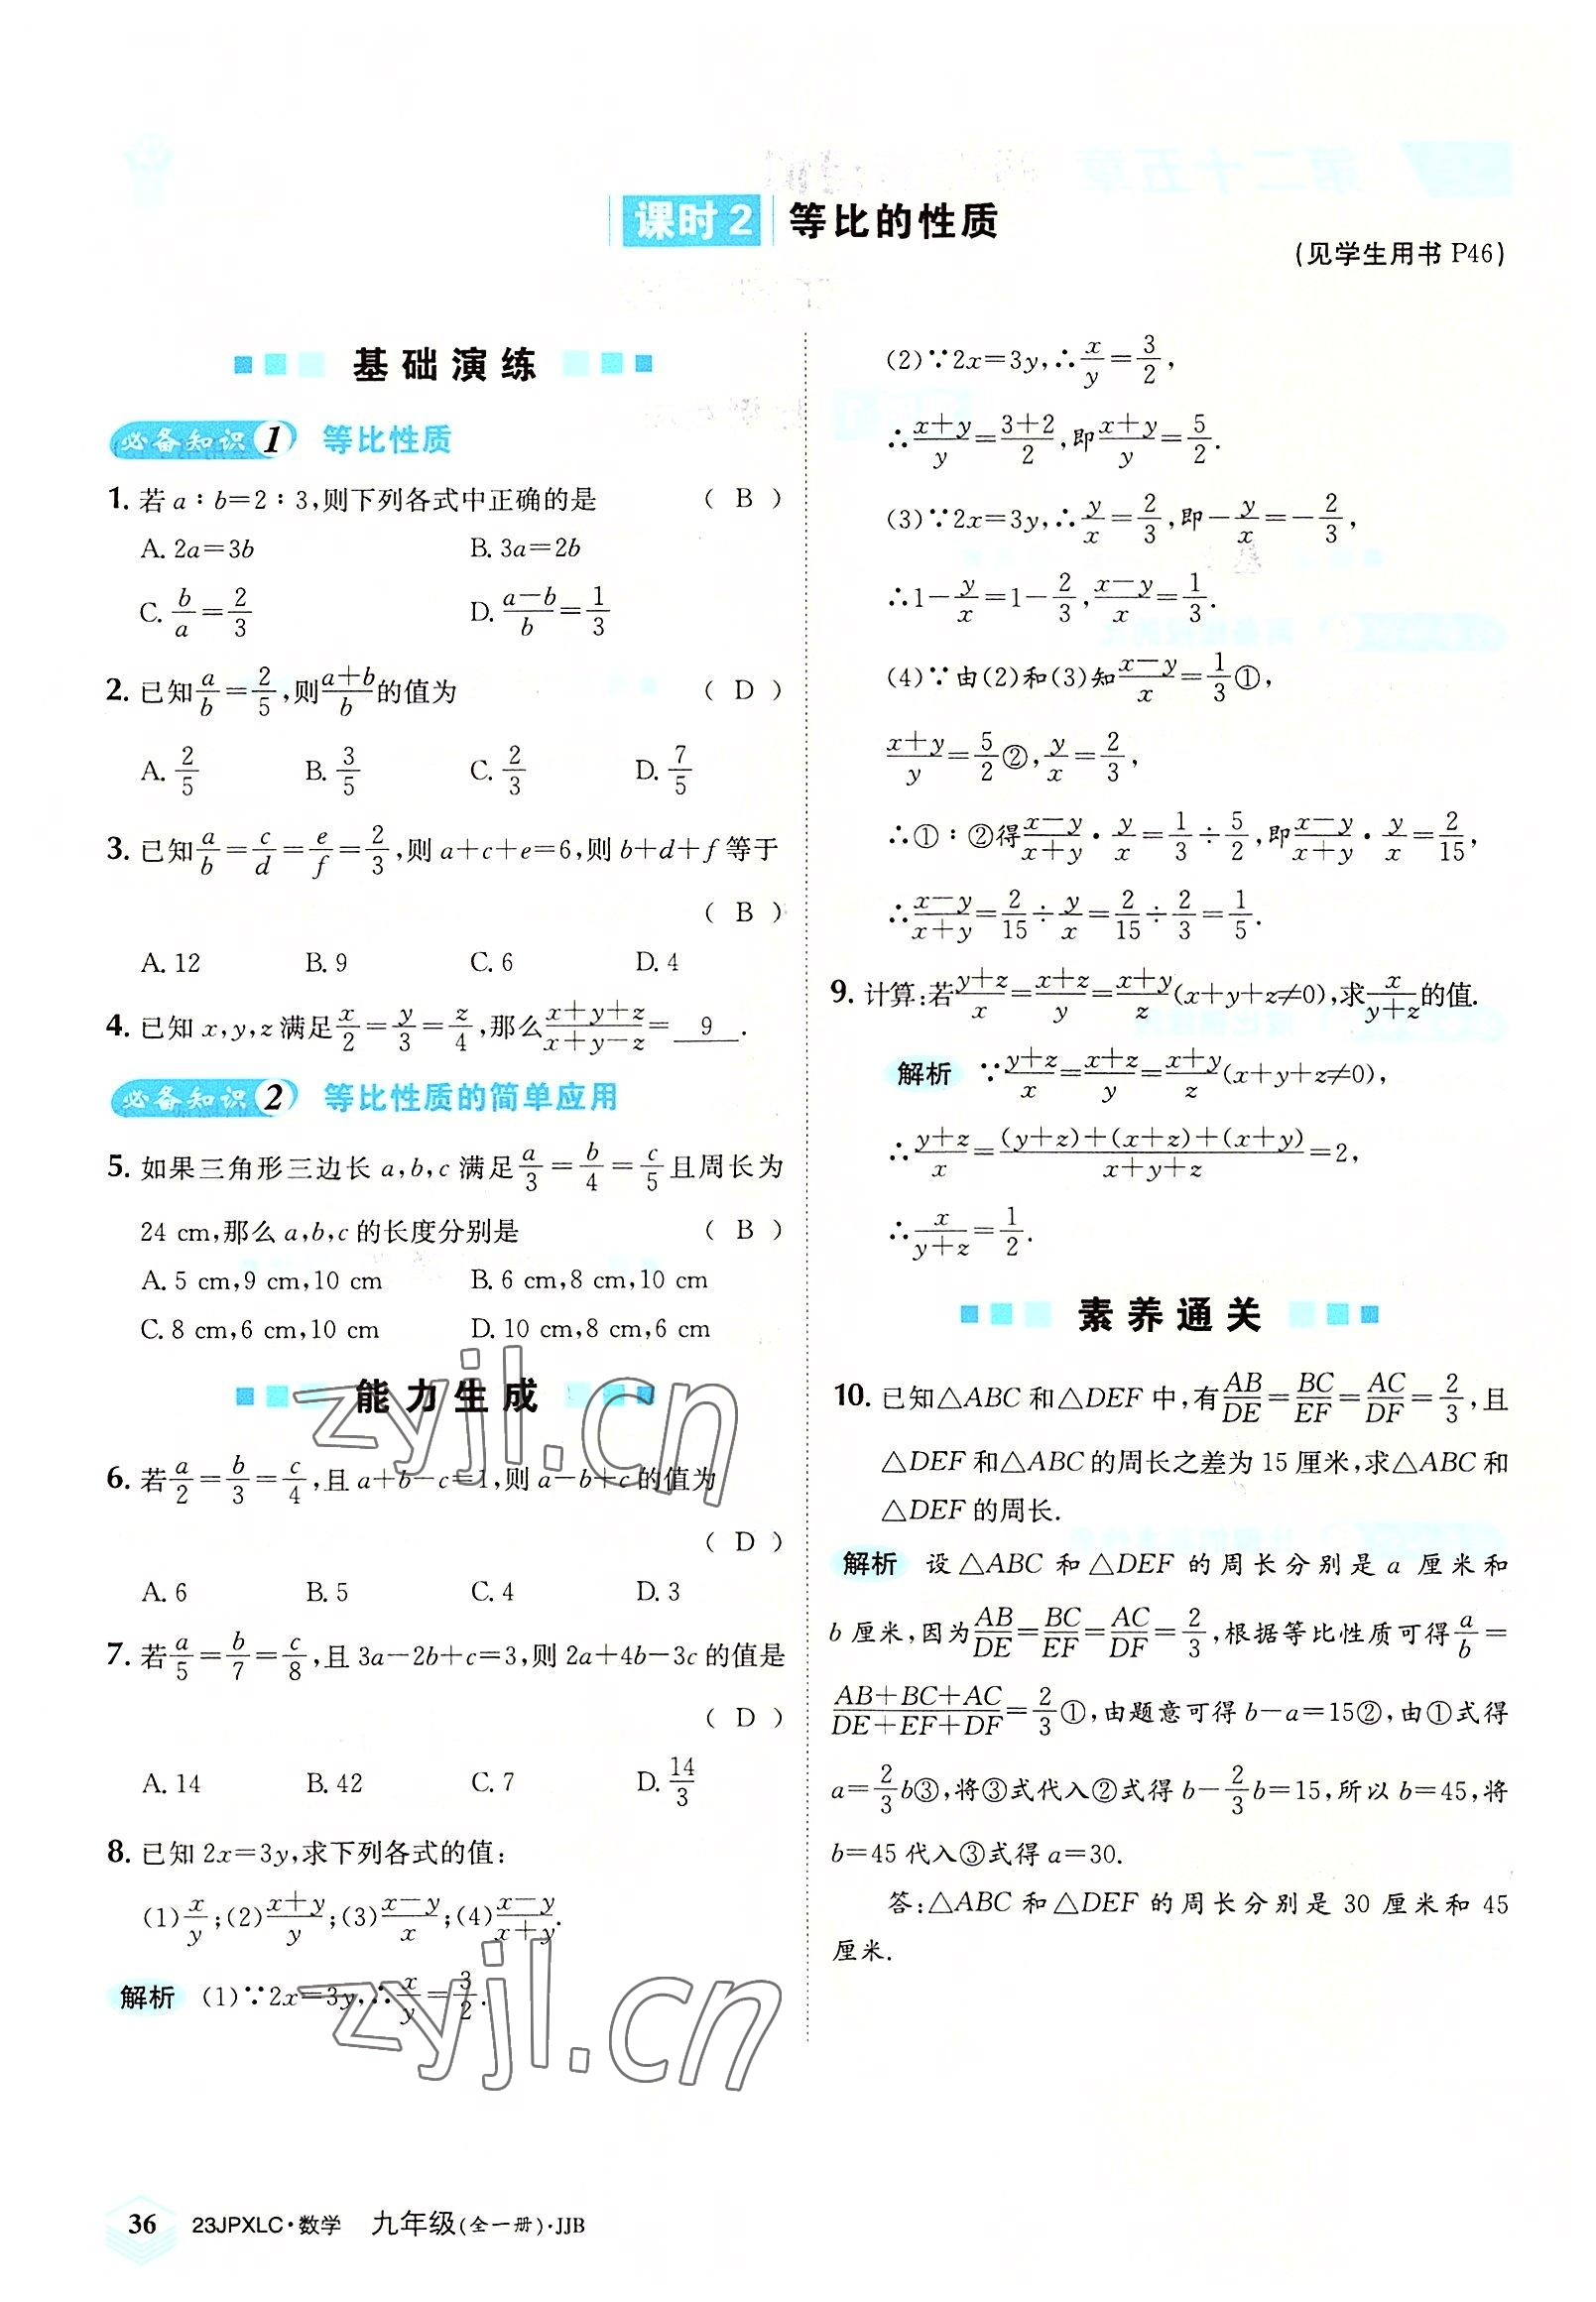 课时2 等比的性质
(见学生用书 P46)
基础演练
必备知识1 等比性质
1. 若 a∶b=2∶3,则下列各式中正确的是 ( B )
A. 2a=3b B. 3a=2b
C. b/a=2/3 D. (a-b)/b=1/3
2. 已知a/b=2/5,则(a+b)/b的值为 ( D )
A. 2/5 B. 3/5 C. 2/3 D. 7/5
3. 已知a/b=c/d=e/f=2/3,则 a+c+e=6,则 b+d+f 等于
( B )
A. 12 B. 9 C. 6 D. 4
4. 已知 x,y,z 满足x/2=y/3=z/4,那么(x+y+z)/(x+y-z)= 9 .
必备知识2 等比性质的简单应用
5. 如果三角形三边长 a,b,c 满足a/3=b/4=c/5且周长为
24 cm,那么 a,b,c 的长度分别是 ( B )
A. 5 cm,9 cm,10 cm B. 6 cm,8 cm,10 cm
C. 8 cm,6 cm,10 cm D. 10 cm,8 cm,6 cm
能力生成
6. 若a/2=b/3=c/4,且 a+b-c=1,则 a-b+c 的值为
( D )
A. 6 B. 5 C. 4 D. 3
7. 若a/5=b/7=c/8,且 3a-2b+c=3,则 2a+4b-3c 的值是
( D )
A. 14 B. 42 C. 7 D. 14/3
8. 已知 2x=3y,求下列各式的值:
(1)x/y;(2)(x+y)/y;(3)(x-y)/x;(4)(x-y)/(x+y).
解析 (1)∵2x=3y,∴x/y=3/2.
(2)∵2x=3y,∴x/y=3/2,
∴(x+y)/y=(3+2)/2,即(x+y)/y=5/2.
(3)∵2x=3y,∴y/x=2/3,即-y/x=-2/3,
∴1-y/x=1-2/3,(x-y)/x=1/3.
(4)∵由(2)和(3)知(x-y)/x=1/3①,
(x+y)/y=5/2②,y/x=2/3,
∴①∶②得(x-y)/(x+y)·y/x=1/3÷5/2,即(x-y)/(x+y)·y/x=2/15,
∴(x-y)/(x+y)=2/15÷y/x=2/15÷2/3=1/5.
9. 计算:若(y+z)/x=(x+z)/y=(x+y)/z(x+y+z≠0),求x/(y+z)的值.
解析 ∵(y+z)/x=(x+z)/y=(x+y)/z(x+y+z≠0),
∴(y+z)/x=((y+z)+(x+z)+(x+y))/(x+y+z)=2,
∴x/(y+z)=1/2.
素养通关
10. 已知△ABC 和△DEF 中,有AB/DE=BC/EF=AC/DF=2/3,且
△DEF 和△ABC 的周长之差为 15 厘米,求△ABC 和
△DEF 的周长.
解析 设△ABC 和△DEF 的周长分别是 a 厘米和
b 厘米,因为AB/DE=BC/EF=AC/DF=2/3,根据等比性质可得a/b=
(AB+BC+AC)/(DE+EF+DF)=2/3①,由题意可得 b-a=15②,由①式得
a=2/3b③,将③式代入②式得 b-2/3b=15,所以 b=45,将
b=45 代入③式得 a=30.
答:△ABC 和△DEF 的周长分别是 30 厘米和 45
厘米.
zyjl.cn
zyjl.cn
36 23JPXLC·数学 九年级(全一册)·JJB